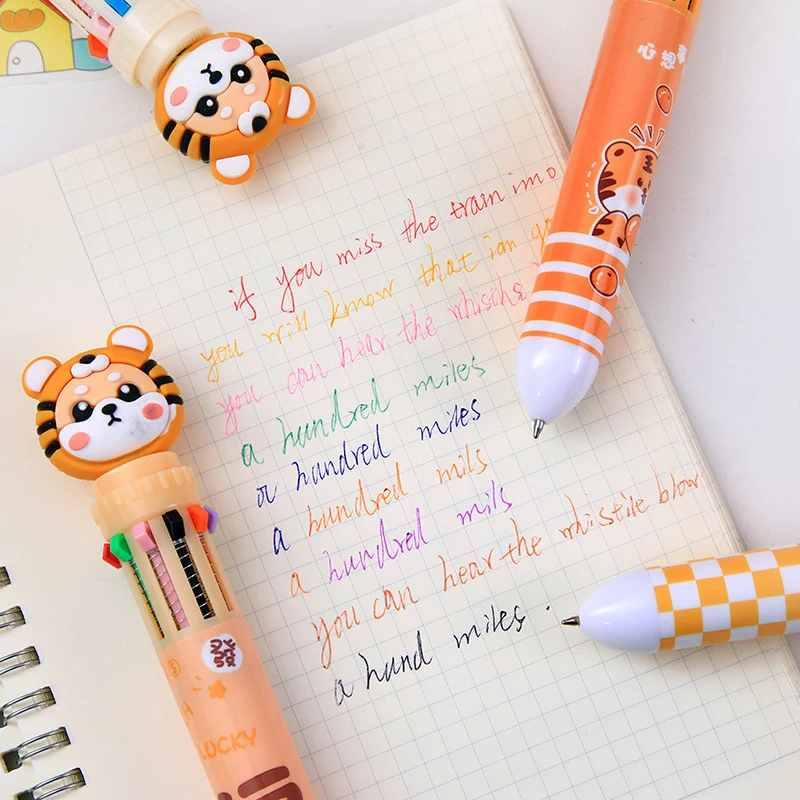 心想
if you miss the train imo
you will know that iam
you can hear the whisths
a hundred miles
a hundred miles
a hundred mils
a hundred mils
you can hear the whistile blow
a hund miles.
LUCKY